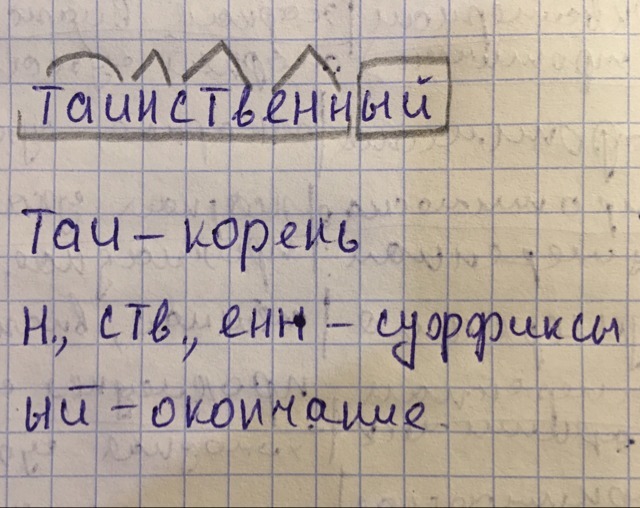 Таинственный
Таи – корень
н., ств., енн – суффиксы
ый – окончание